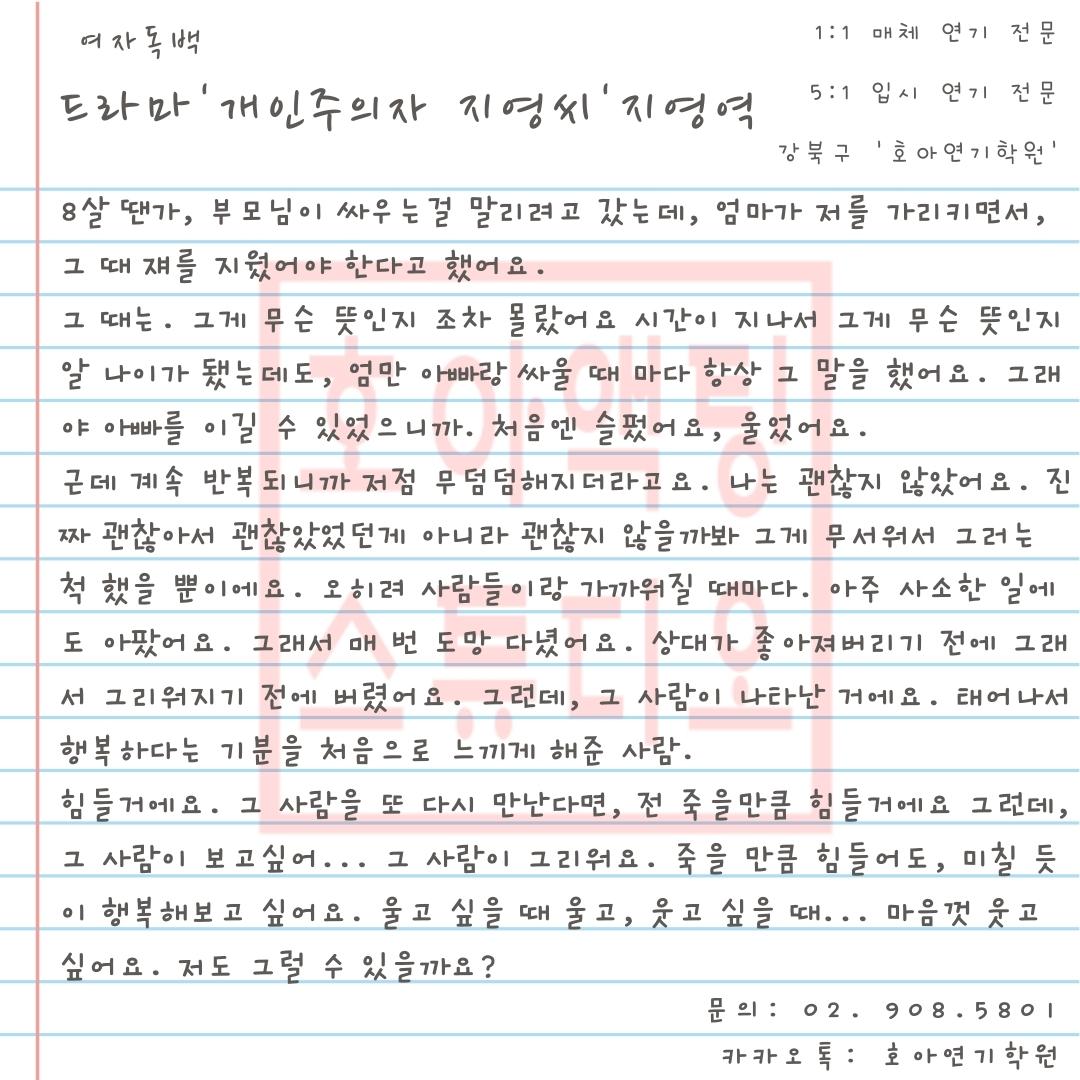 여자독백
1:1 매체 연기 전문
드라마'개인주의자 지영씨'지영역
5:1 입시 연기 전문
강북구 '호아연기학원'
8살 땐가, 부모님이 싸우는걸 말리려고 갔는데, 엄마가 저를 가리키면서,
그 때 쟤를 지웠어야 한다고 했어요.
그 때는. 그게 무슨 뜻인지 조차 몰랐어요 시간이 지나서 그게 무슨 뜻인지
알 나이가 됐는데도, 엄만 아빠랑 싸울 때 마다 항상 그 말을 했어요. 그래
야 아빠를 이길 수 있었으니까. 처음엔 슬펐어요, 울었어요.
근데 계속 반복되니까 저점 무덤덤해지더라고요. 나는 괜찮지 않았어요. 진
짜 괜찮아서 괜찮았었던게 아니라 괜찮지 않을까봐 그게 무서워서 그러는
척 했을 뿐이에요. 오히려 사람들이랑 가까워질 때마다. 아주 사소한 일에
도 아팠어요. 그래서 매 번 도망 다녔어요. 상대가 좋아져버리기 전에 그래
서 그리워지기 전에 버렸어요. 그런데, 그 사람이 나타난 거에요. 태어나서
행복하다는 기분을 처음으로 느끼게 해준 사람.
힘들거에요. 그 사람을 또 다시 만난다면, 전 죽을만큼 힘들거에요 그런데,
그 사람이 보고싶어... 그 사람이 그리워요. 죽을 만큼 힘들어도, 미칠 듯
이 행복해보고 싶어요. 울고 싶을 때 울고, 웃고 싶을 때... 마음껏 웃고
싶어요. 저도 그럴 수 있을까요?
호아액팅
스튜디오
문의: 02. 908.5801
카카오톡: 호아연기학원